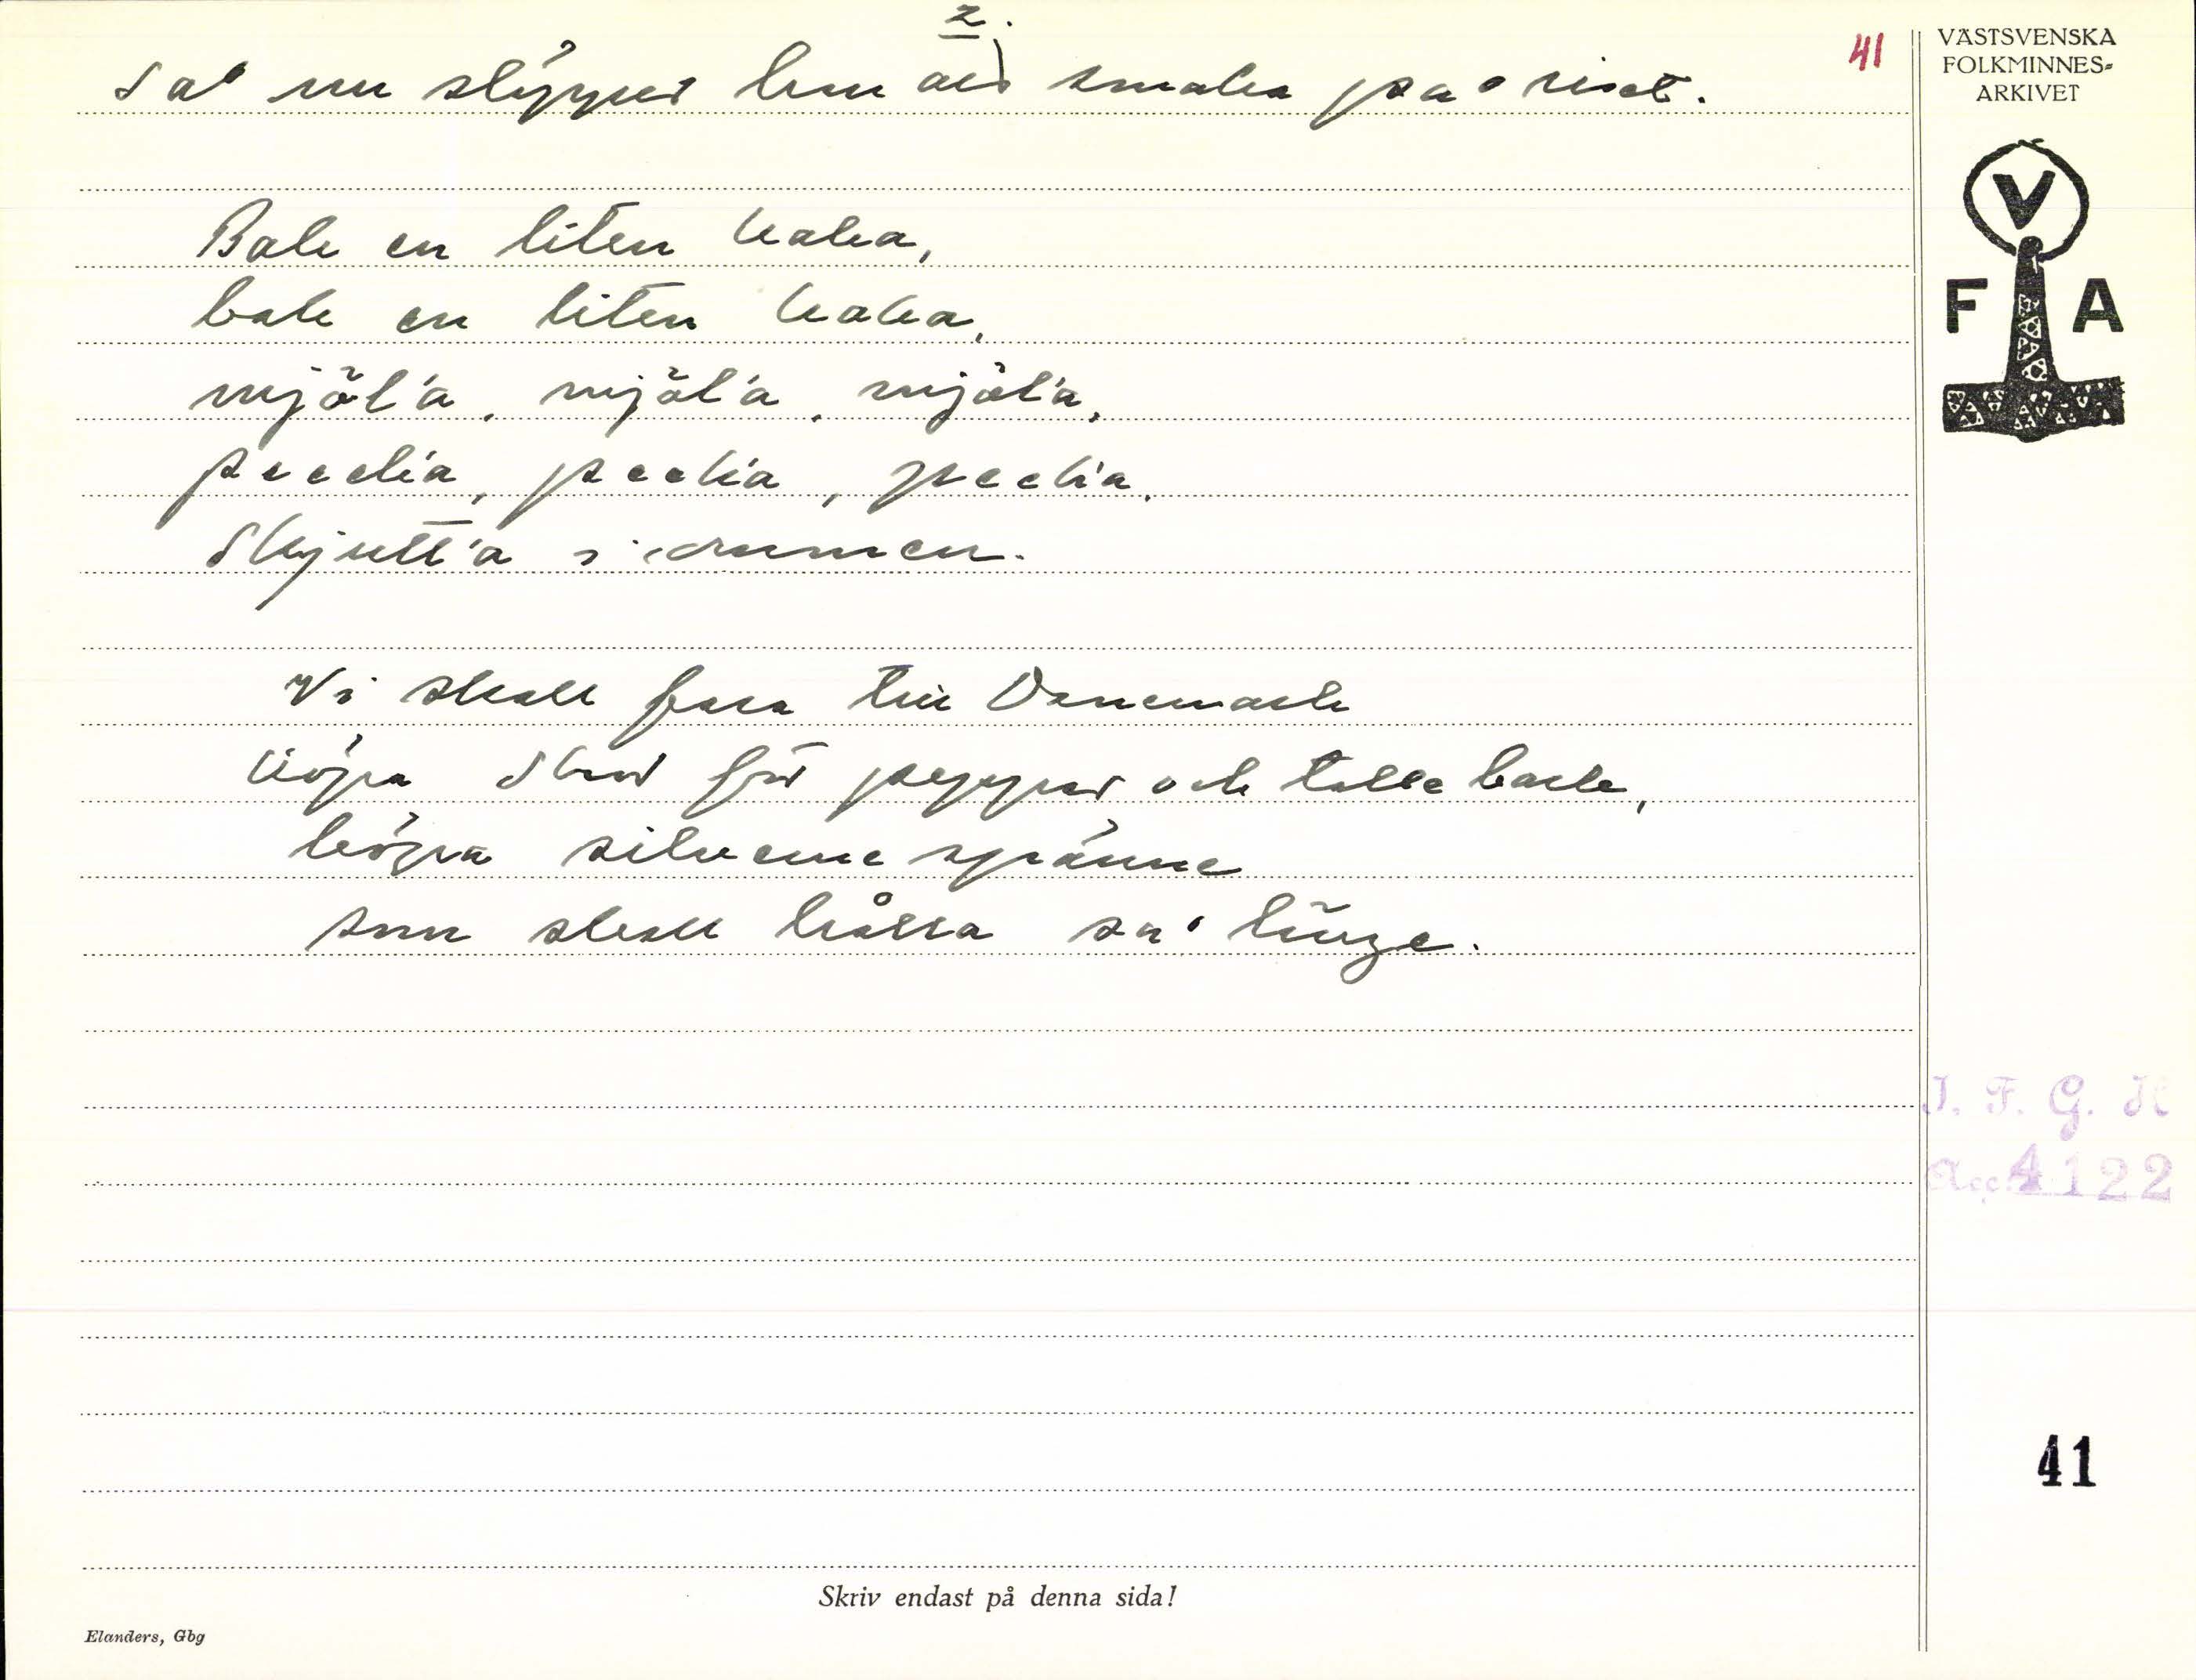 2.
41
så nu slipper hun att smaka på riset.
Bak en liten kaka,
bak en liten kaka,
mjöl'a, mjöl'a, mjöl'a,
pecka, pecka, pecka,
Skjutt'a i ornmen.
Vi skall fara till Danemark
köpa skor för peppar och talle bark,
köpa silverne spänne
som skall hålla så länge.
VÄSTSVENSKA
FOLKMINNES-
ARKIVET
V
F A
I. F. G. H
Acc 4122
41
Skriv endast på denna sida!
Elanders, Gbg